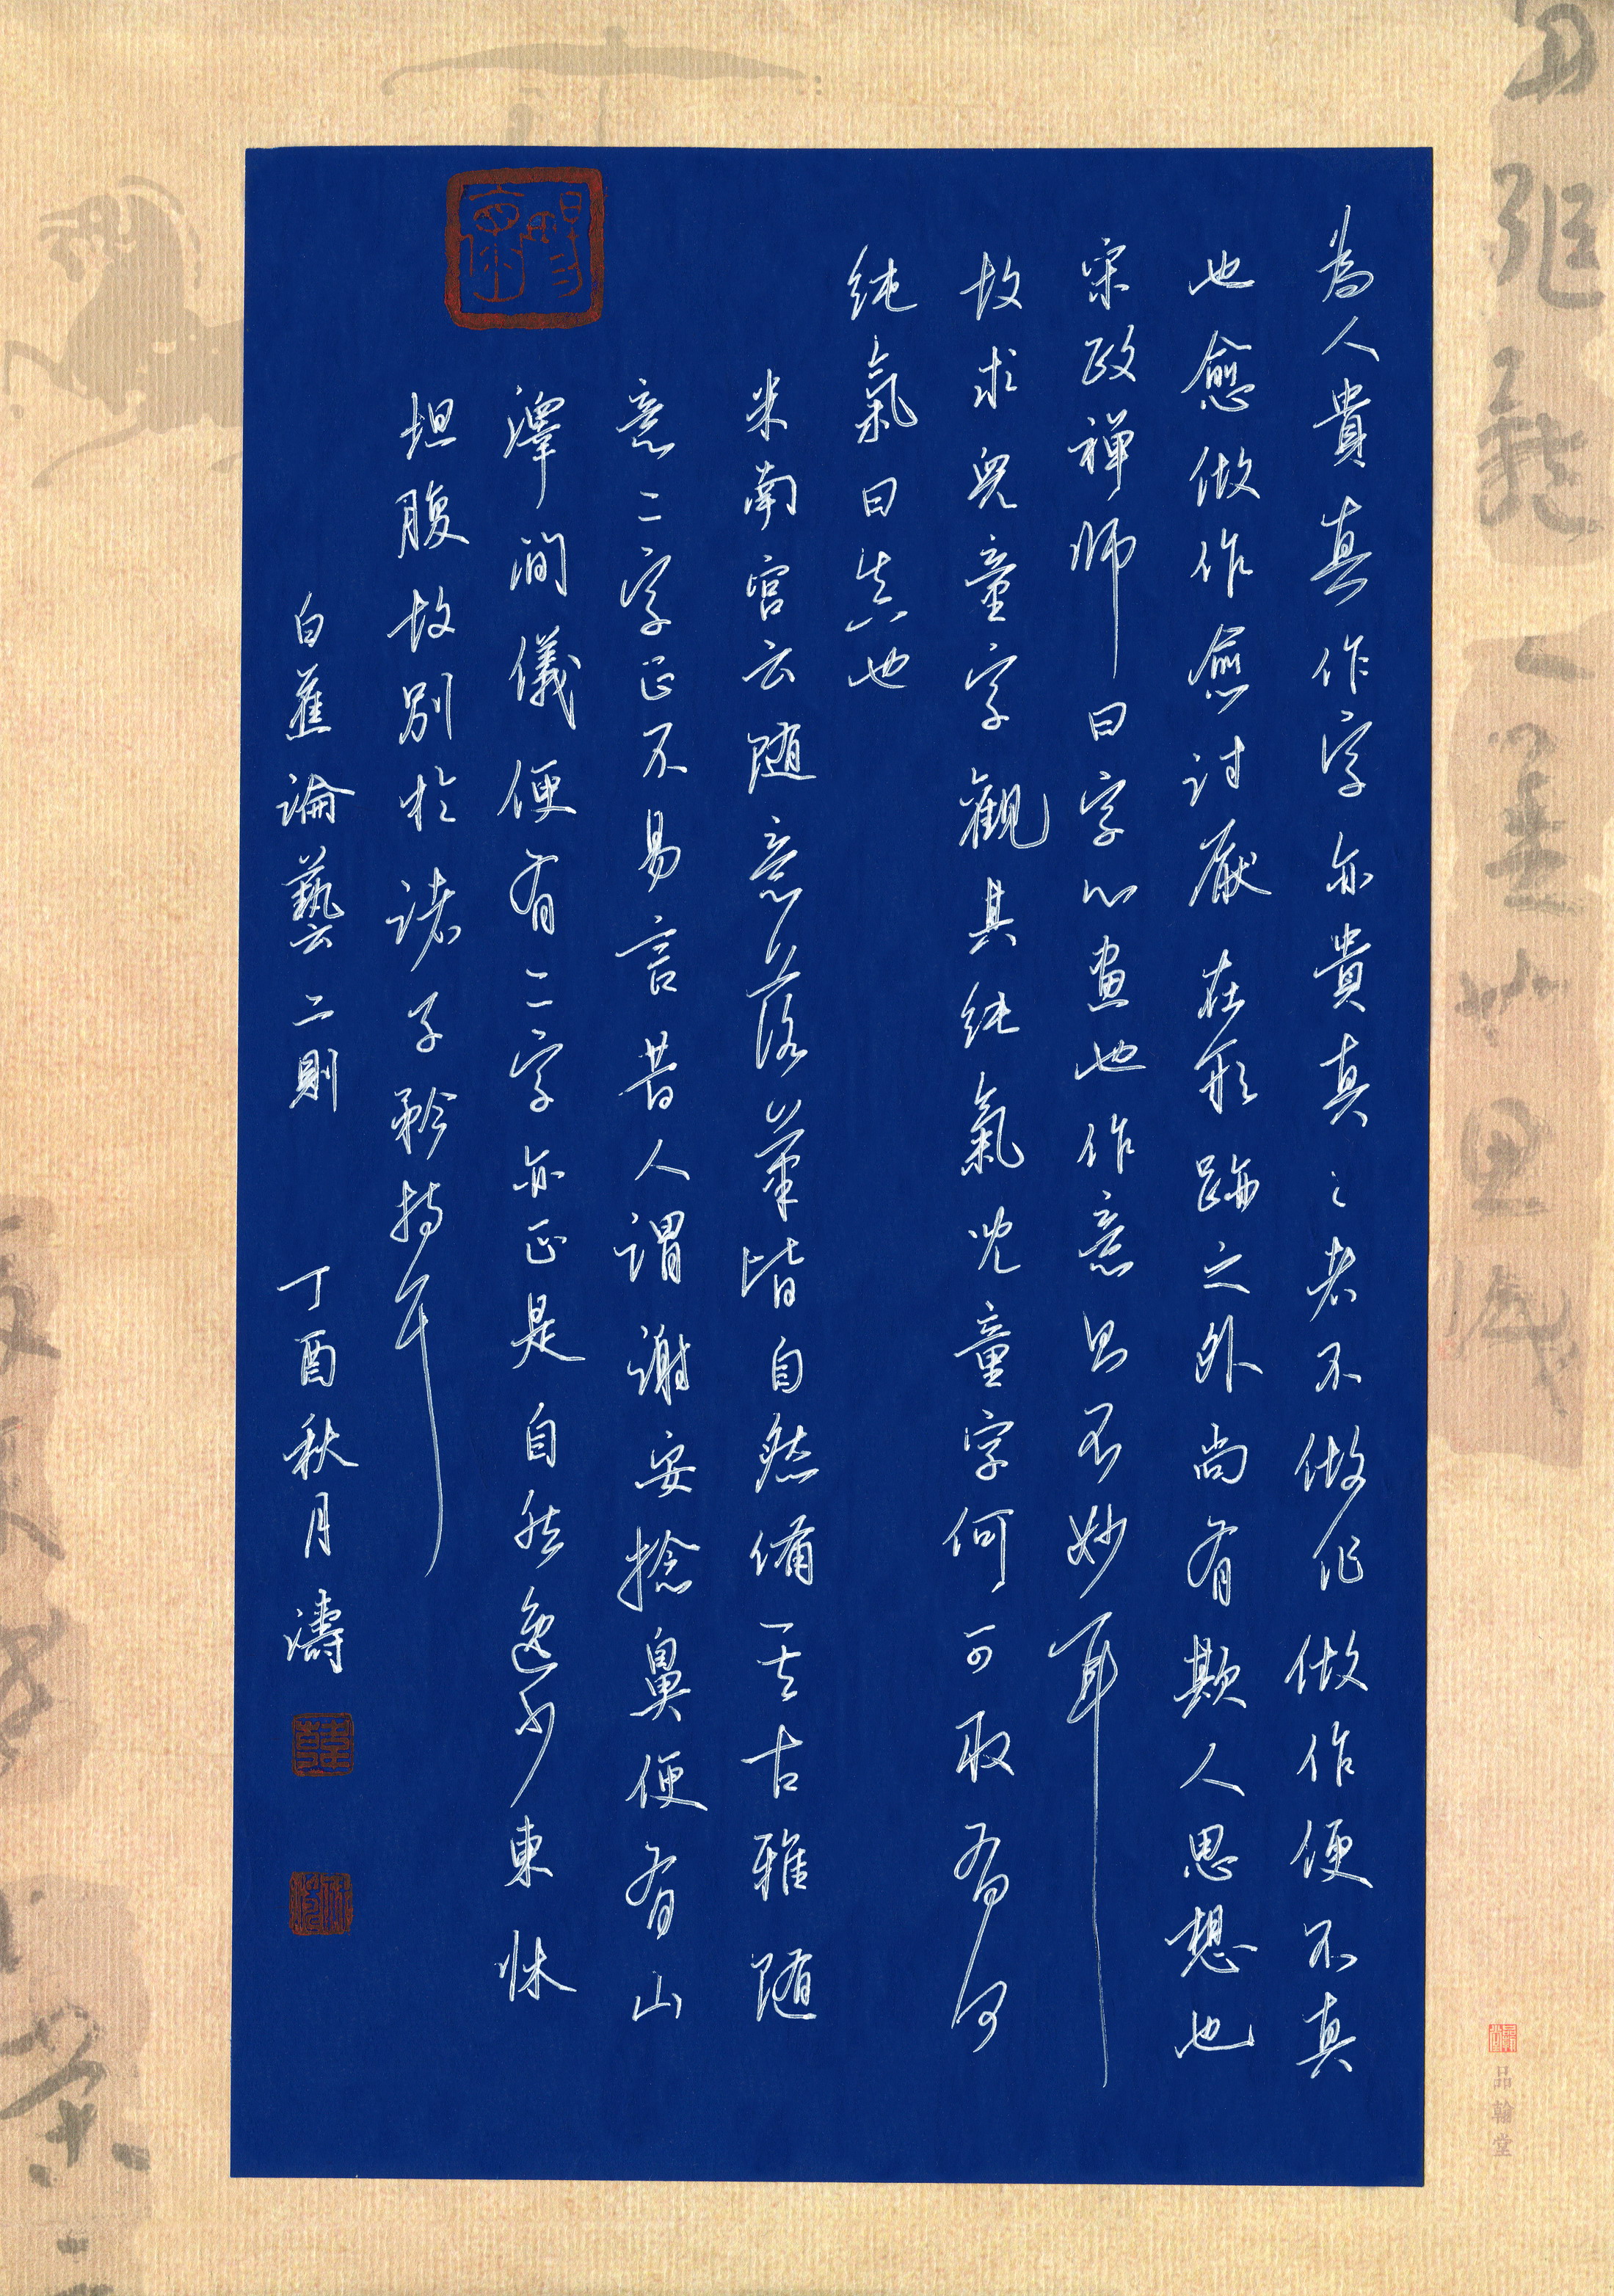 為人貴真作字亦貴真真之者不做作做作便不真
也愈做作愈討厭在形跡之外尚有欺人思想也
宋政禅师曰字心畫也作意則不妙耳
故求兒童字觀其純氣嘗兒童字何可取者何
純氣曰真也
米南宮云随意落筆皆自然備其古雅随
意二字正不易言昔人謂謝安捻鼻便有山
澤間儀便有二字亦正是自然逸处東牀
坦腹故别於諸子矜持耳
白蕉論藝云二則 丁酉秋月濤
品翰堂